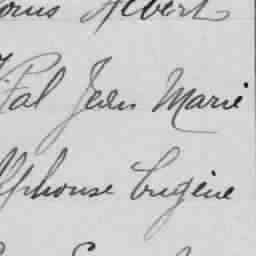 ouis Albert
Pal Jean Marie
lphonse Eugène